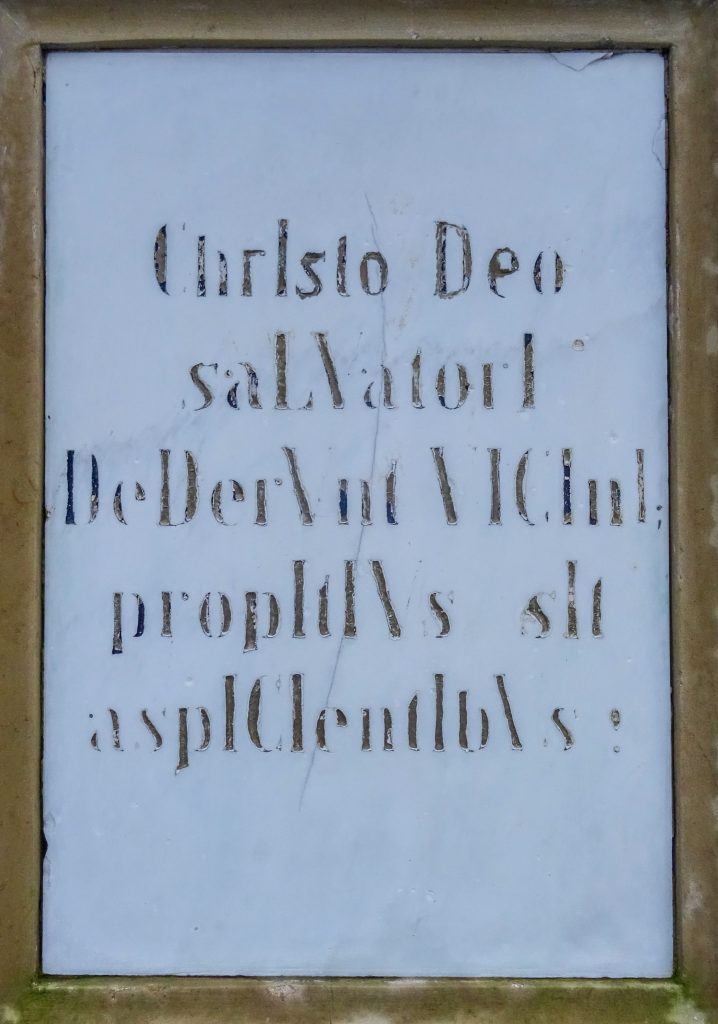 ChrIsto Deo
saLVatorI
DeDerVnt VICInI;
propItIVs sIt
aspICIentIbVs :